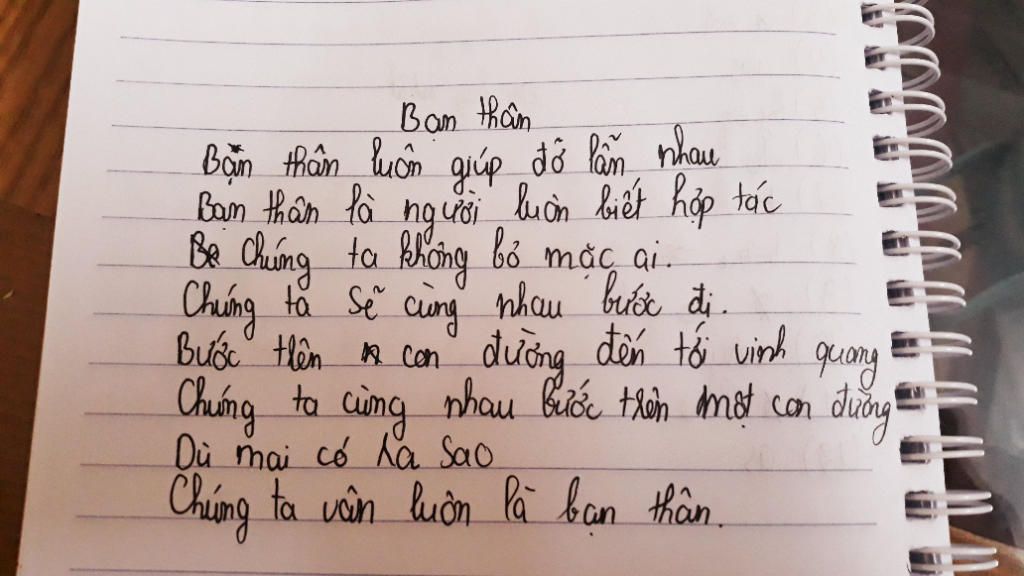 Bạn thân
Bạn thân luôn giúp đỡ lẫn nhau
Bạn thân là người luôn biết hợp tác
Chúng ta không bỏ mặc ai.
Chúng ta sẽ cùng nhau bước đi.
Bước trên con đường đến tới vinh quang
Chúng ta cùng nhau bước trên một con đường
Dù mai có ra sao
Chúng ta vân luôn là bạn thân.